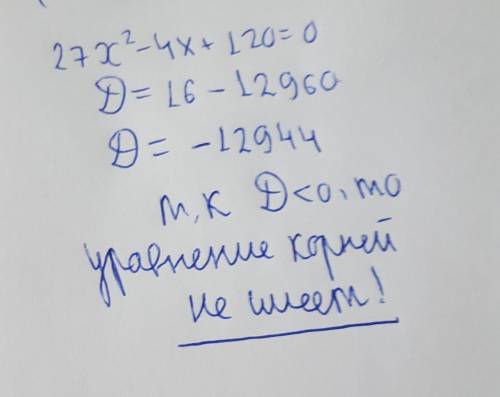 27x²-4x+120=0
D=16-12960
D=-12944
т,к D<0, то
уравнение корней
не имеет!